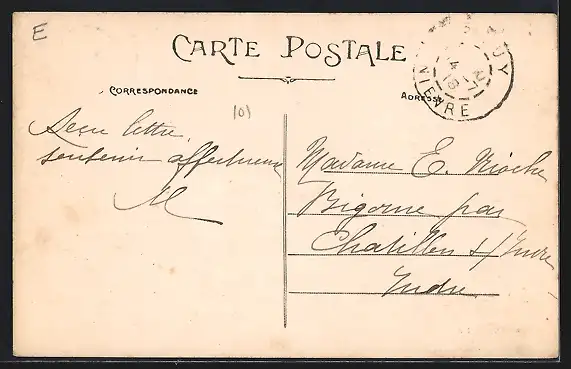 E
CARTE POSTALE
CORRESPONDANCE
ADRESSE
NIEVRE
101
Reçu lettre
souvenir affectueux
M
Madame E.
Bigorne par
Chatillon s/Indre
Indre